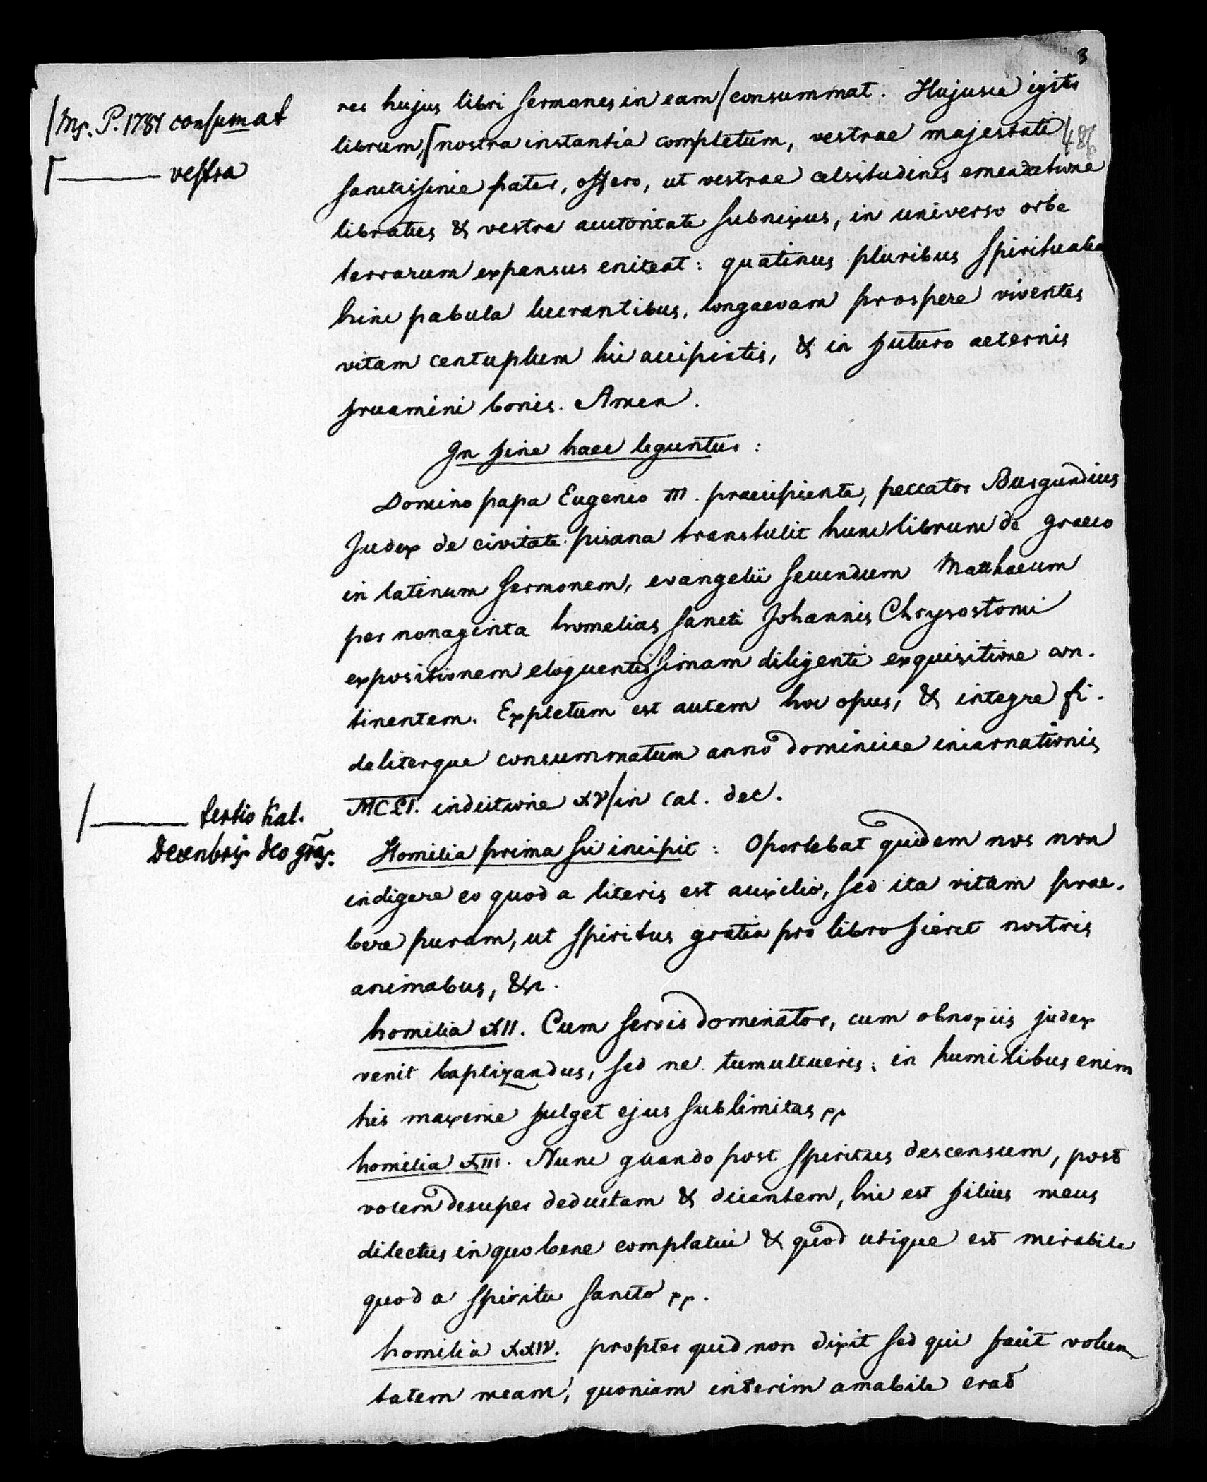 8
res hujus libri sermones in eam / consummat. Hujusce igitr
/ Ms. P. 1781 consumat
librum, ┌ nostra instantia completum, vestrae majestati
┌ ——— vestra
sanctissime pater, offero, ut vestrae celsitudinis emendatione
libratus & vestra auctoritate subnixus, in universo orbe
terrarum expansus eniteat: quatinus pluribus spiritualia
hinc pabula lucrantibus, longaevam prospere viventes
vitam centuplum hic accipiatis, & in futuro aeternis
fruamini bonis. Amen.
In fine haec leguntur:
Domino papa Eugenio III. praecipiente, peccator Burgundius
Judex de civitate pisana transtulit hunc librum de graeco
in latinum sermonem, evangelii secundum Matthaeum
per nonaginta homelias sancti Johannis Chrysostomi
expositionem eloquentissimam diligenti exquisitione con-
tinentem. Expletum est autem hoc opus, & integre fi-
deliterque consummatum anno dominicae incarnationis
MCLI. indictione XV / in cal. dec.
/ ——— tertio kal.
Decenbris deo grās.
Homilia prima sic incipit: Oportebat quidem nos non
indigere eo quod a literis est auxilio, sed ita vitam prae-
bere puram, ut spiritus gratia pro libro fieret nostris
animabus, &c.
homilia XII. Cum servis dominator, cum obnoxiis judex
venit baptizandus, sed ne tumultueris; in humilibus enim
his maxime fulget ejus sublimitas pp
homilia XIII. Nunc quando post spiritus descensum, post
vocem desuper deductam & dicentem, hic est filius meus
dilectus in quo bene complacui & quod utique est mirabile
quod a spiritu sancto pp.
homilia XXIV. propter quid non dixit sed qui facit volun
tatem meam, quoniam interim amabile erat